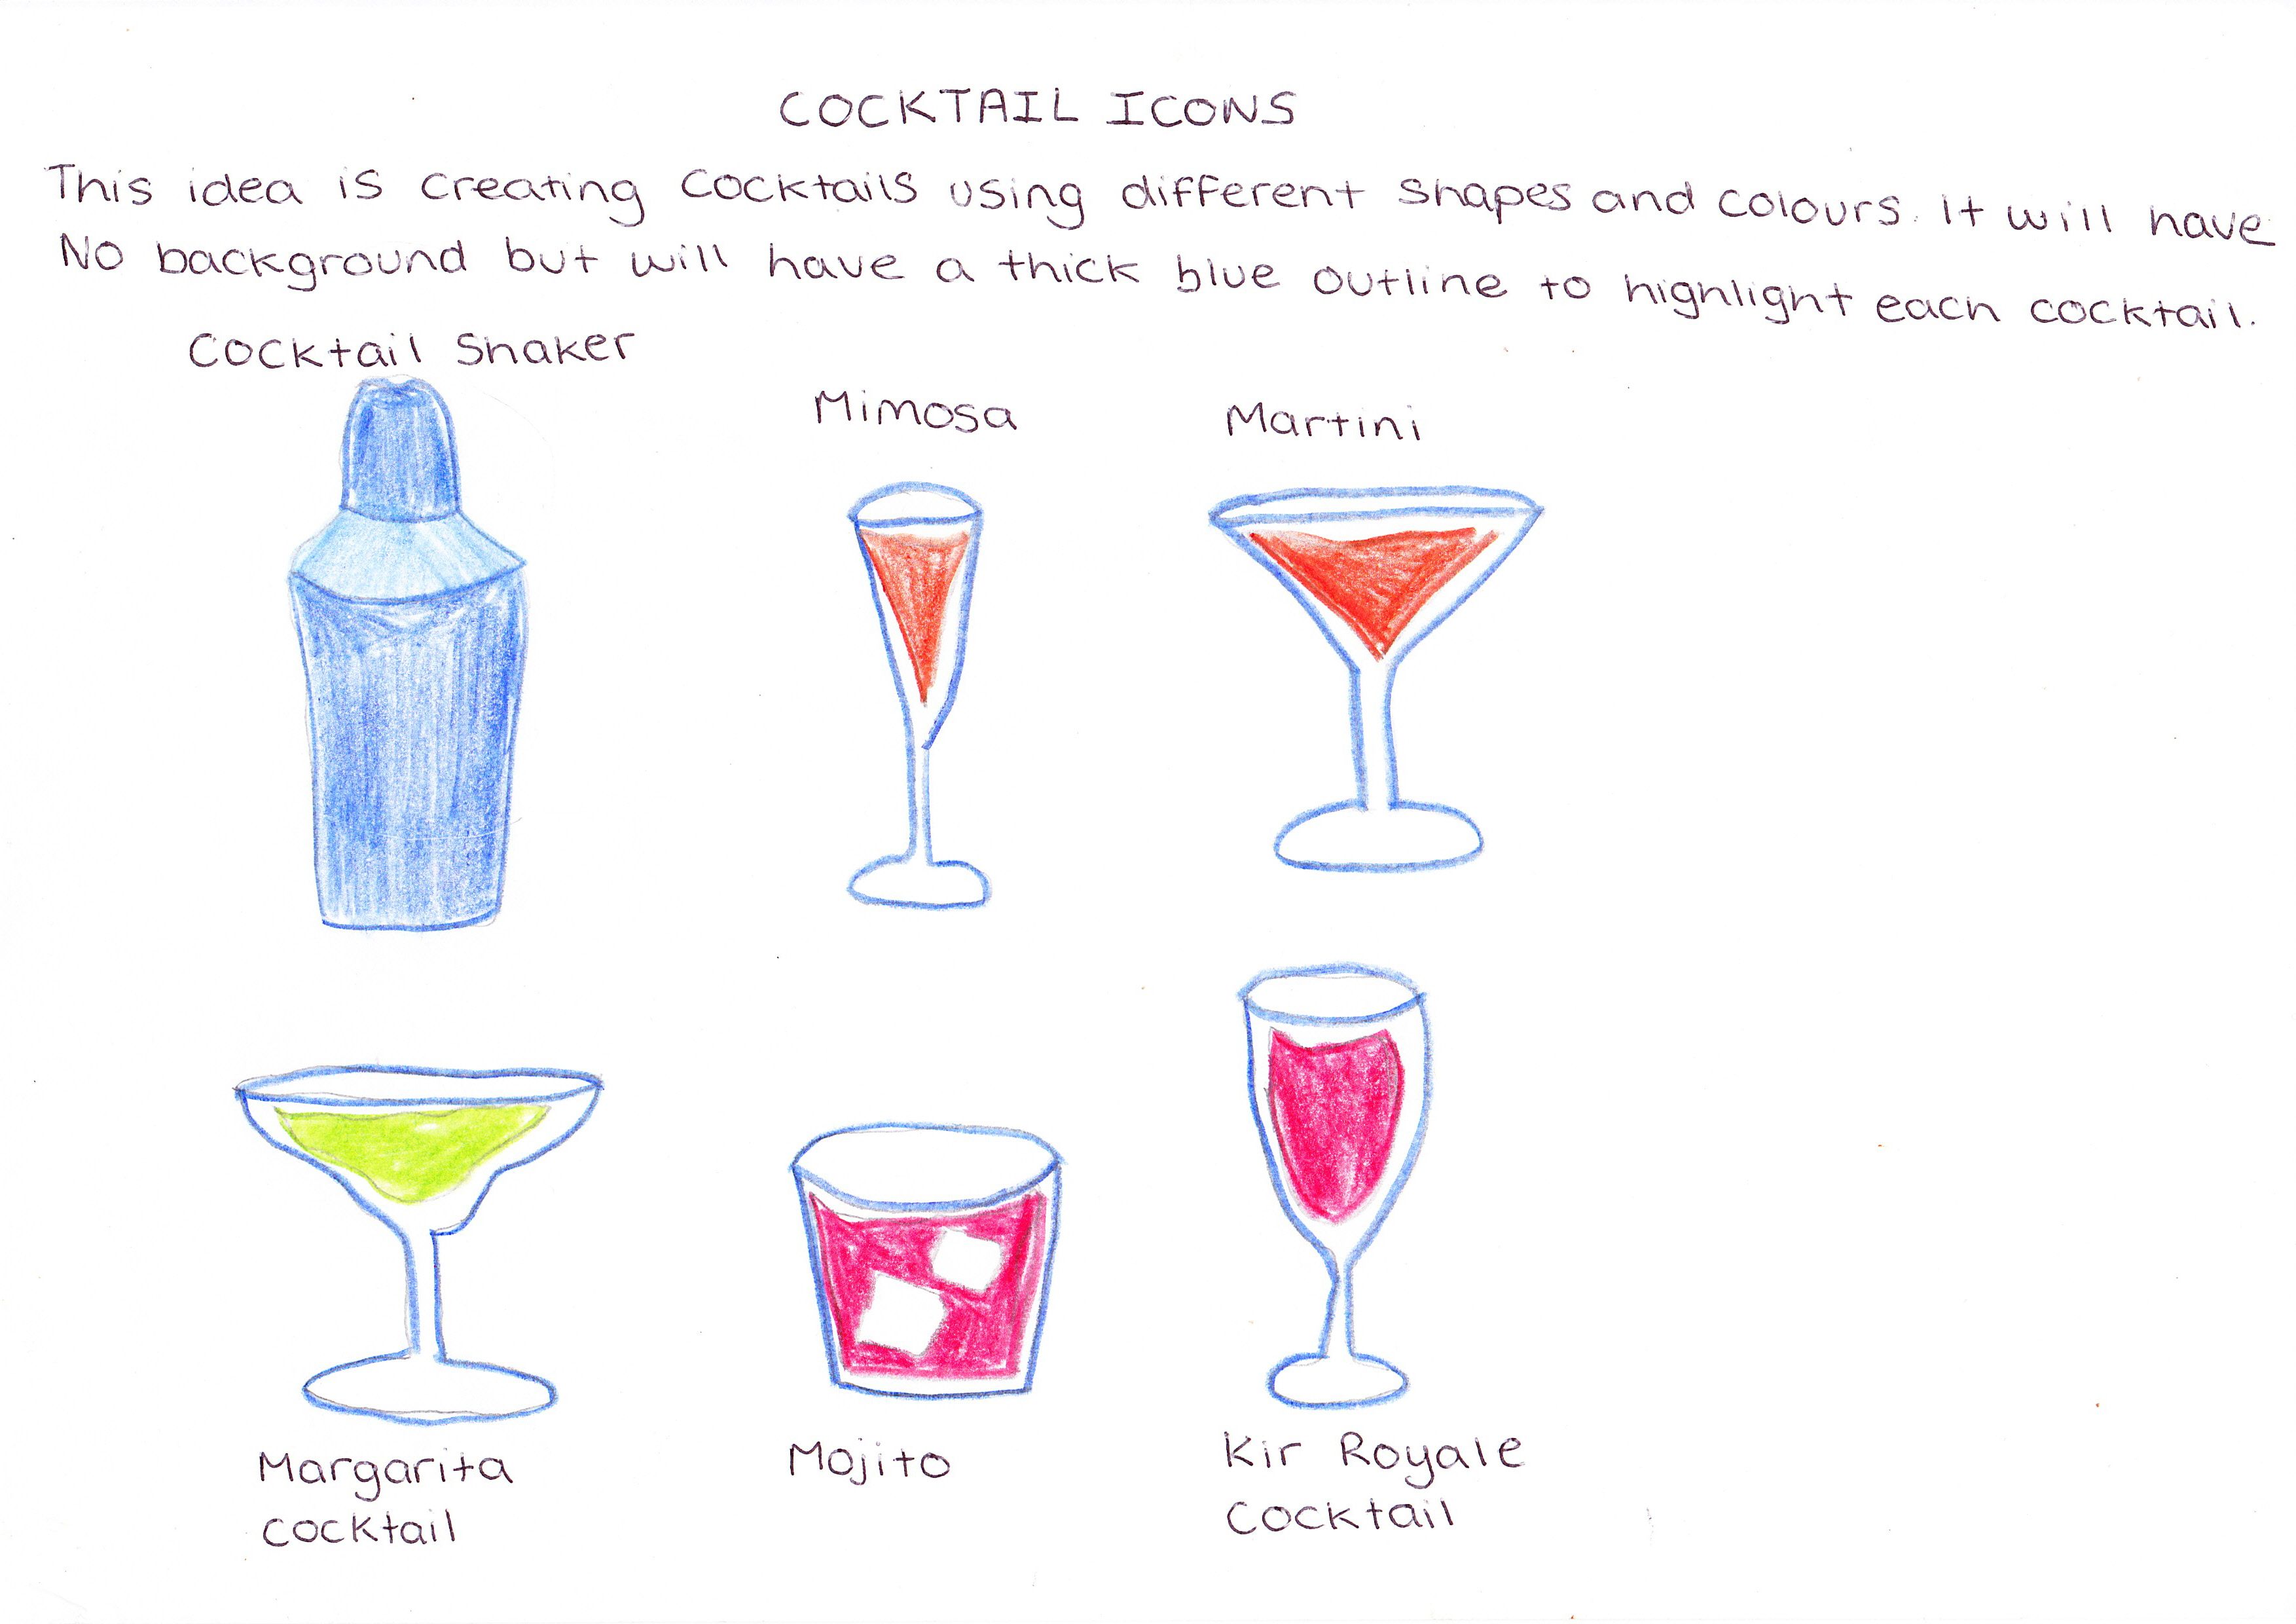 COCKTAIL ICONS
This idea is creating cocktails using different shapes and colours. It will have
No background but will have a thick blue outline to highlight each cocktail.
Cocktail Shaker
Mimosa
Martini
Margarita
cocktail
Mojito
Kir Royale
Cocktail